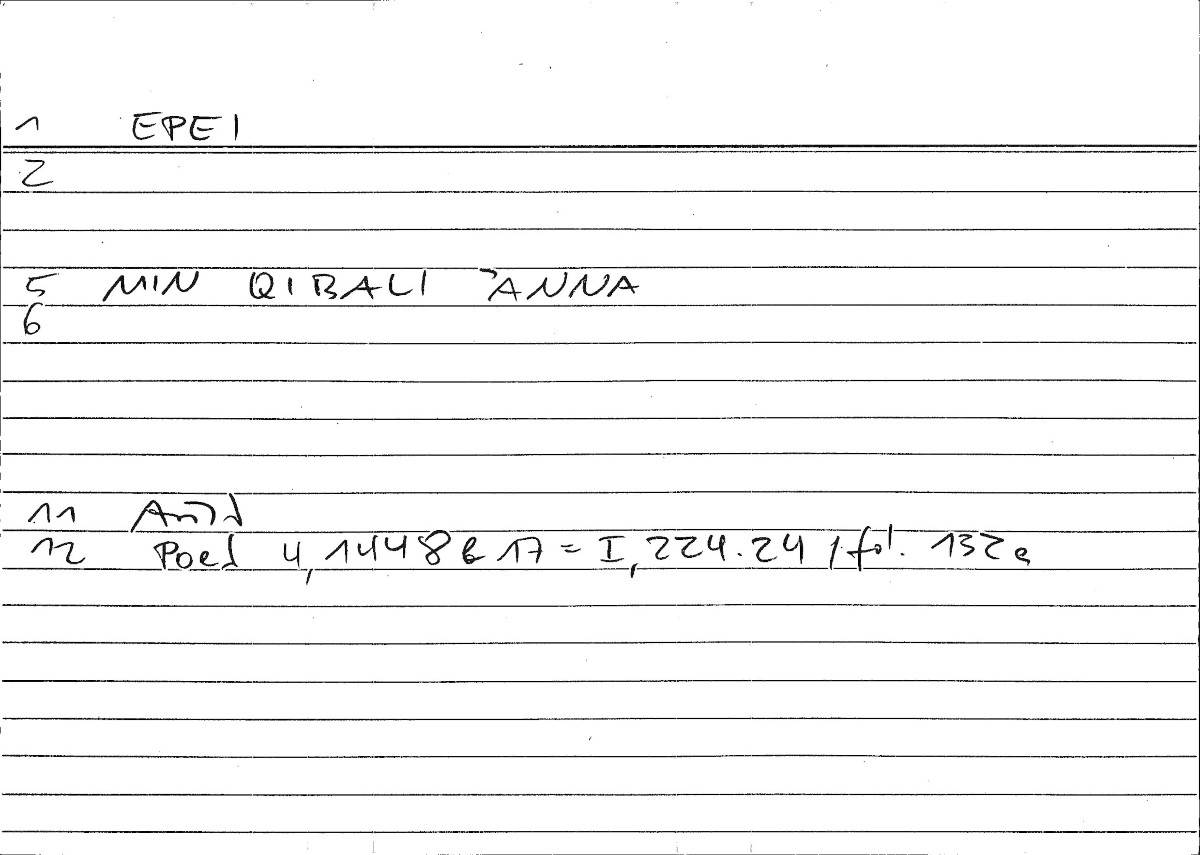 1 EPEI
2
5 MIN QIBALI ʾANNA
6
11
12 Poet 4, 1448 b 17 = I, 224.24 / fol. 132 a